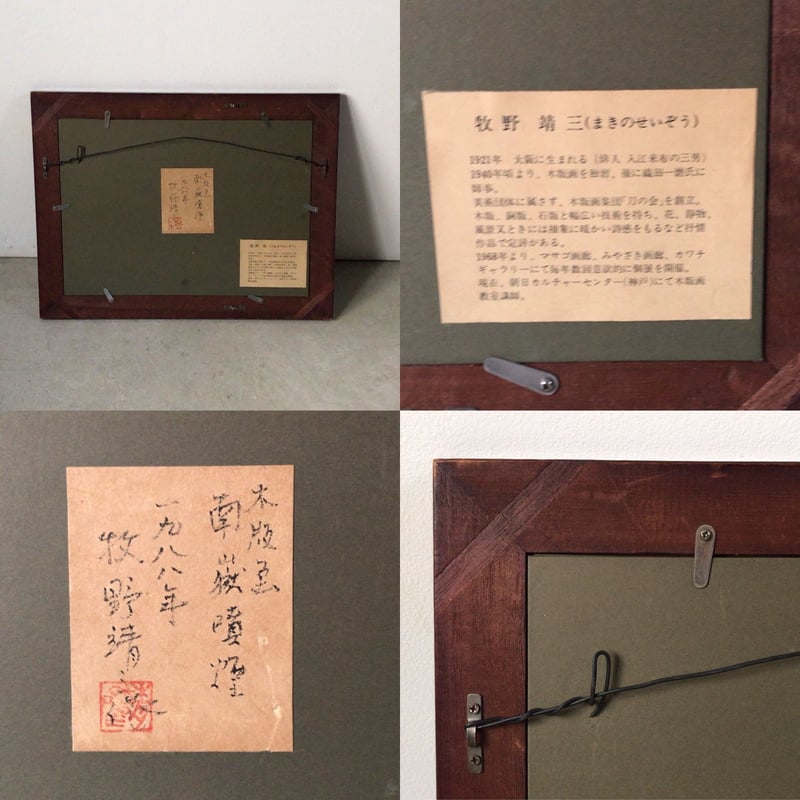 牧野 靖三(まきのせいぞう)
1921年 大阪に生まれる(俳人 入江来布の三男)
1940年頃より、木版画を独習、後に織田一磨氏に
師事。
美術団体に属さず、木版画集団「刀の会」を創立。
木版、銅版、石版と幅広い技術を持ち、花、静物、
風景又ときには抽象に暖かい詩感をもるなど抒情
作品で定評がある。
1968年より、マサゴ画廊、みやざき画廊、カワチ
ギャラリーにて毎年数回意欲的に個展を開催。
現在、朝日カルチャーセンター(神戸)にて木版画
教室講師。
木版画
南嶽噴煙
一九八八年
牧野靖三